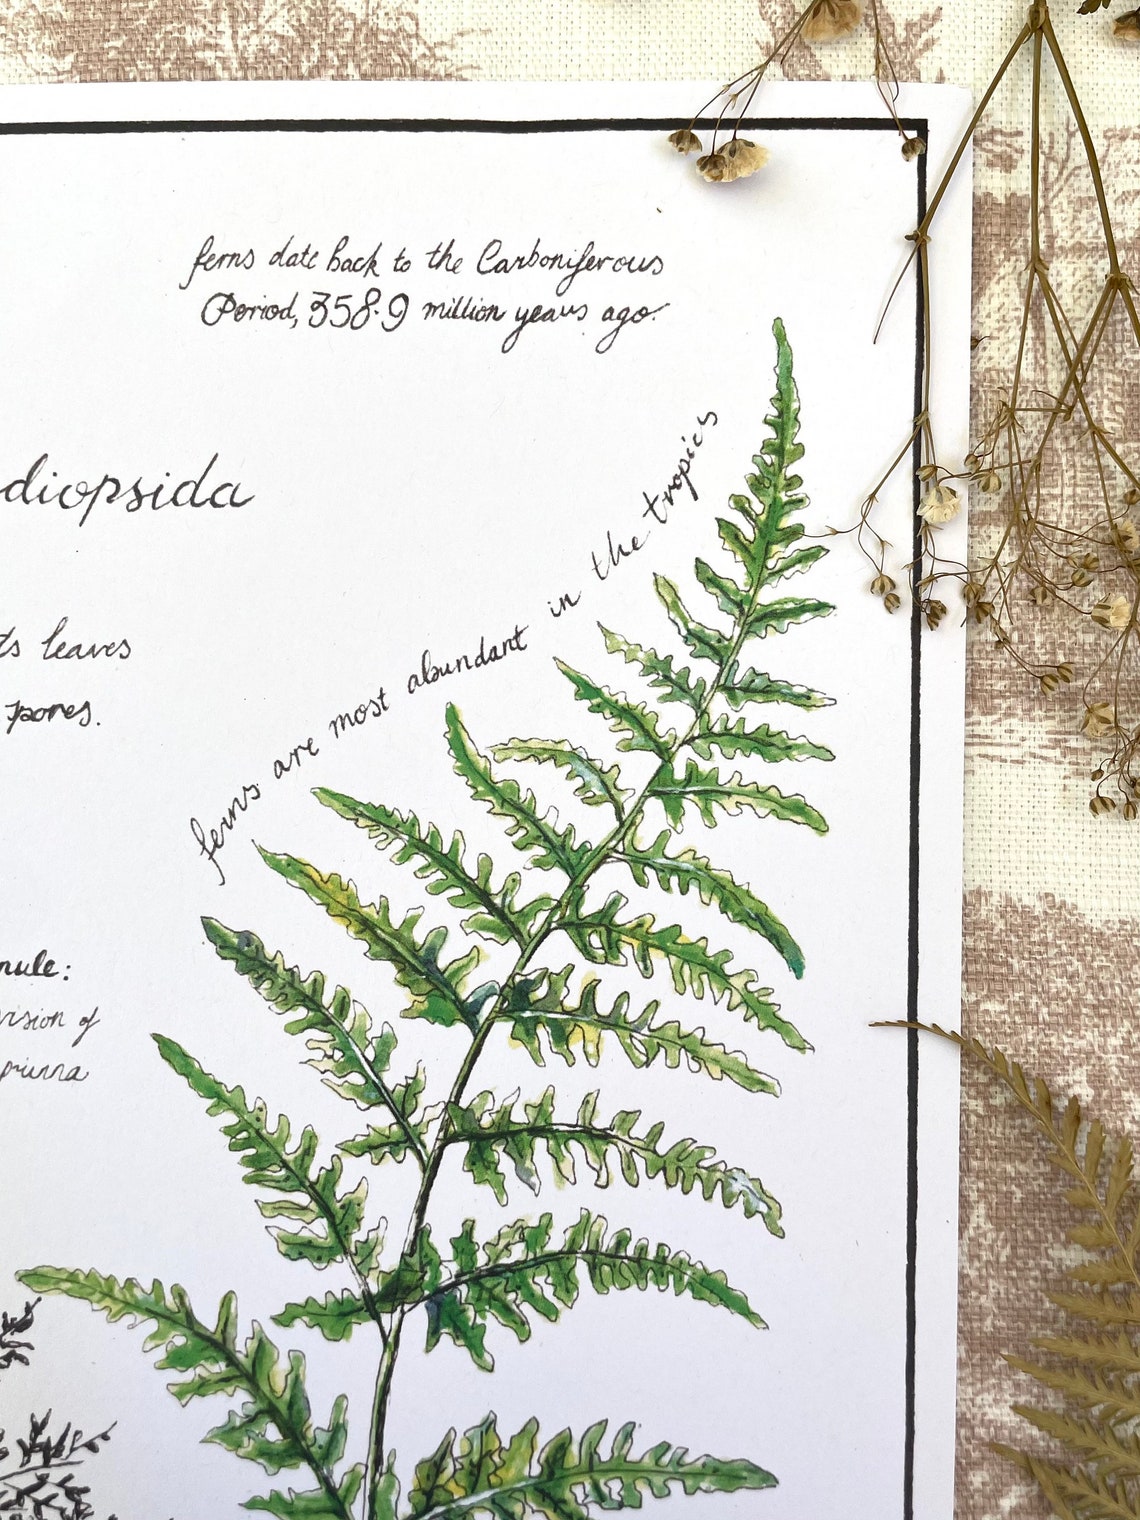 ferns date back to the Carboniferous
Period, 358.9 million years ago.
diopsida
ferns are most abundant in the tropics
ts leaves
spores.
nule:
vision of
pinna